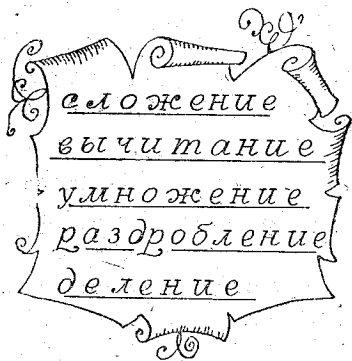 сложение
вычитание
умножение
раздробление
деление